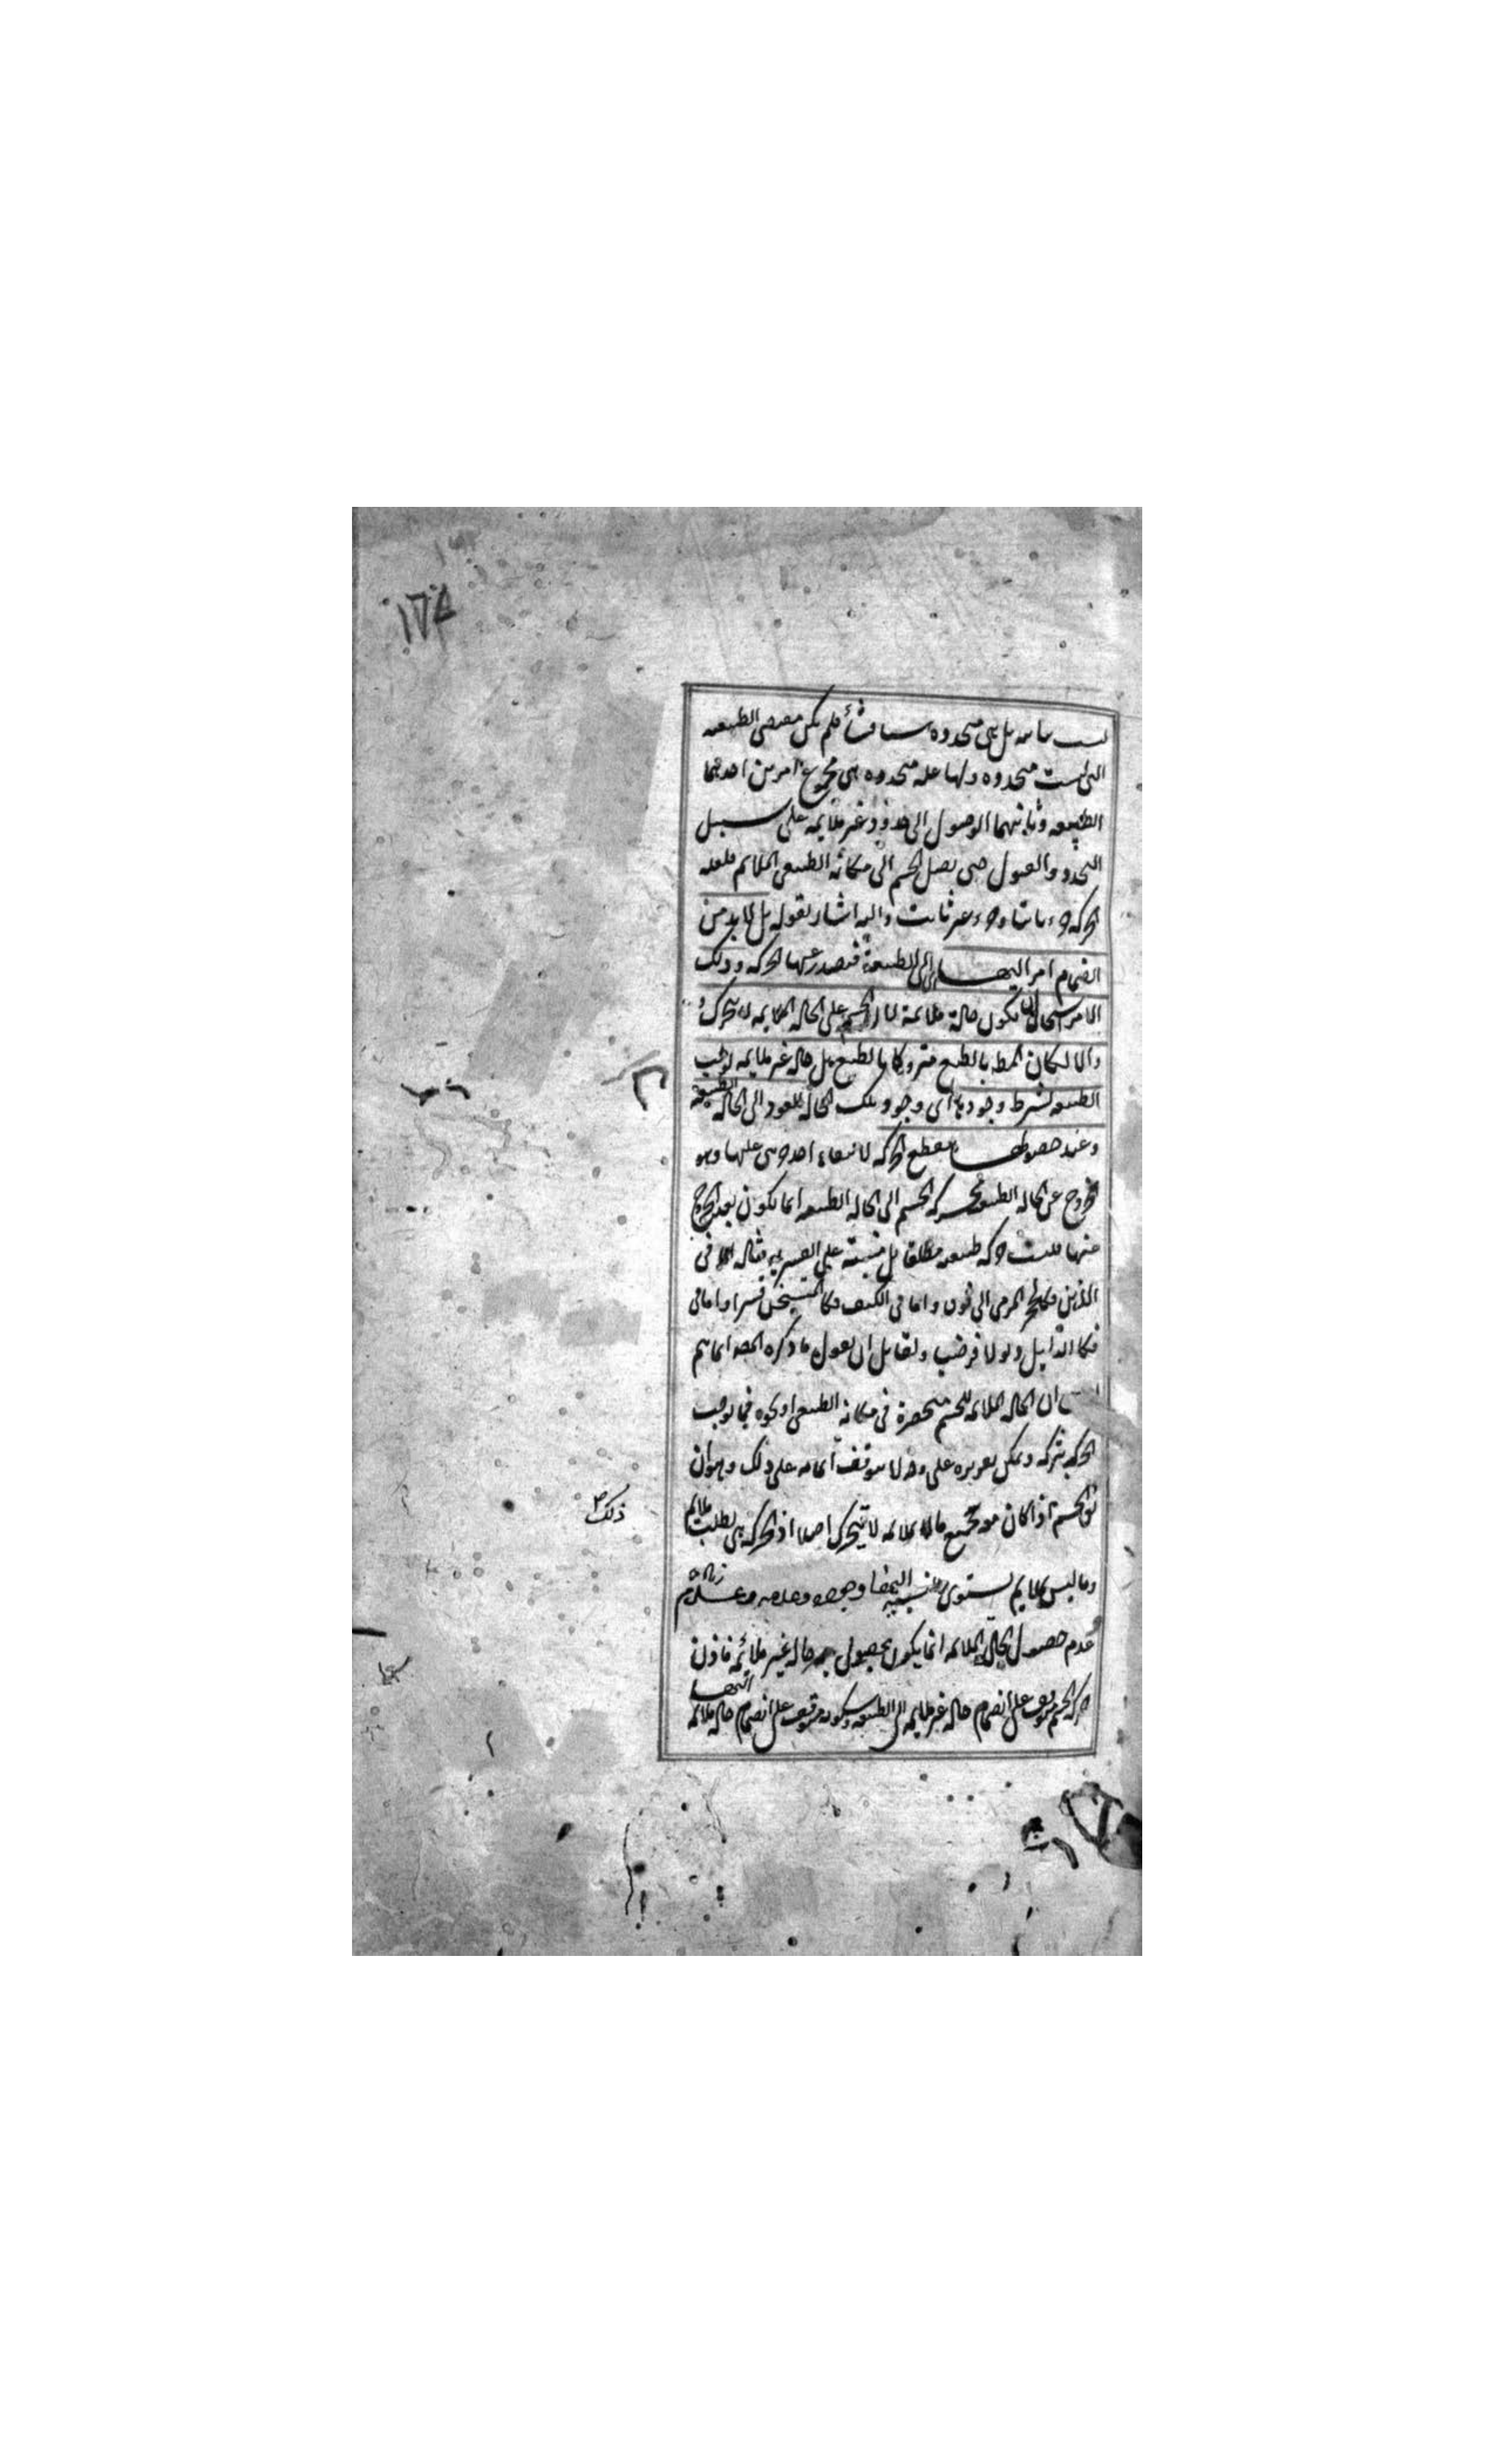 ١٦٨
ليست ثابتة بل هى متجددة شيئا فشيئا فلم يكن مقتضى الطبيعة
التى ليست متجددة ولها علة متجددة هى مجموع امرين احدهما
الطبيعة وثانيهما الوصول الى حدود غير ملايمة على سبيل
التجدد و حتى يصل الجسم الى مكانه الطبيعى الملايم فلعلة
الحركة جزء ثابت وجزء غير ثابت واليه اشار بقوله بل لا بد من
انضمام امر اليها اى الى الطبيعة فتصدر عنها الحركة وذلك
الامر استحال ان يكون حالة ملايمة لان الجسم على الحالة الملايمة لا يتحرك
والا لكان المط بالطبع متروكا بالطبع بل حالة غير ملايمة توجب
الطبيعة بشرط وجودها اى وجود تلك الحالة العود الى الحالة الطبيعية
وعند حصولها ينقطع الحركة لانتفاء احد جزئى علتها وهو
الخروج عن الحالة الطبيعية الجسم الى الحالة الطبيعية انما يكون بعد الخروج
عنها فليست حركة طبيعية مطلقا بل مبنية على القسرية مثاله اما فى
الاين فكالحجر المرمى الى فوق واما فى الكيف فكالمتسخن قسرا واما فى
فكالذابل ولقايل ان يقول ما ذكره المصـ انما يتم
ان الحالة الملايمة للجسم منحصرة فى مكانه الطبيعى او نحوه فيما يوجب
الحركة بتركه ويمكن تقريره على وجه لا يتوقف اتمامه على ذلك وهو ان
الجسم اذا كان معه جميع ما يلايمه لا يتحرك اصلا اذ الحركة هى لطلب ملايم
ذلك
وما ليس بملايم يستوى بنسبته اليها وجوده وعدمه
عدم حصول الحالة الملايمة انما يكون بحصول حالة غير ملايمة فاذن
حركة الجسم موقوف على انضمام حالة غير ملايمة الى الطبيعة وسكونه موقوف على انضمام حالة ملايمة
اليها